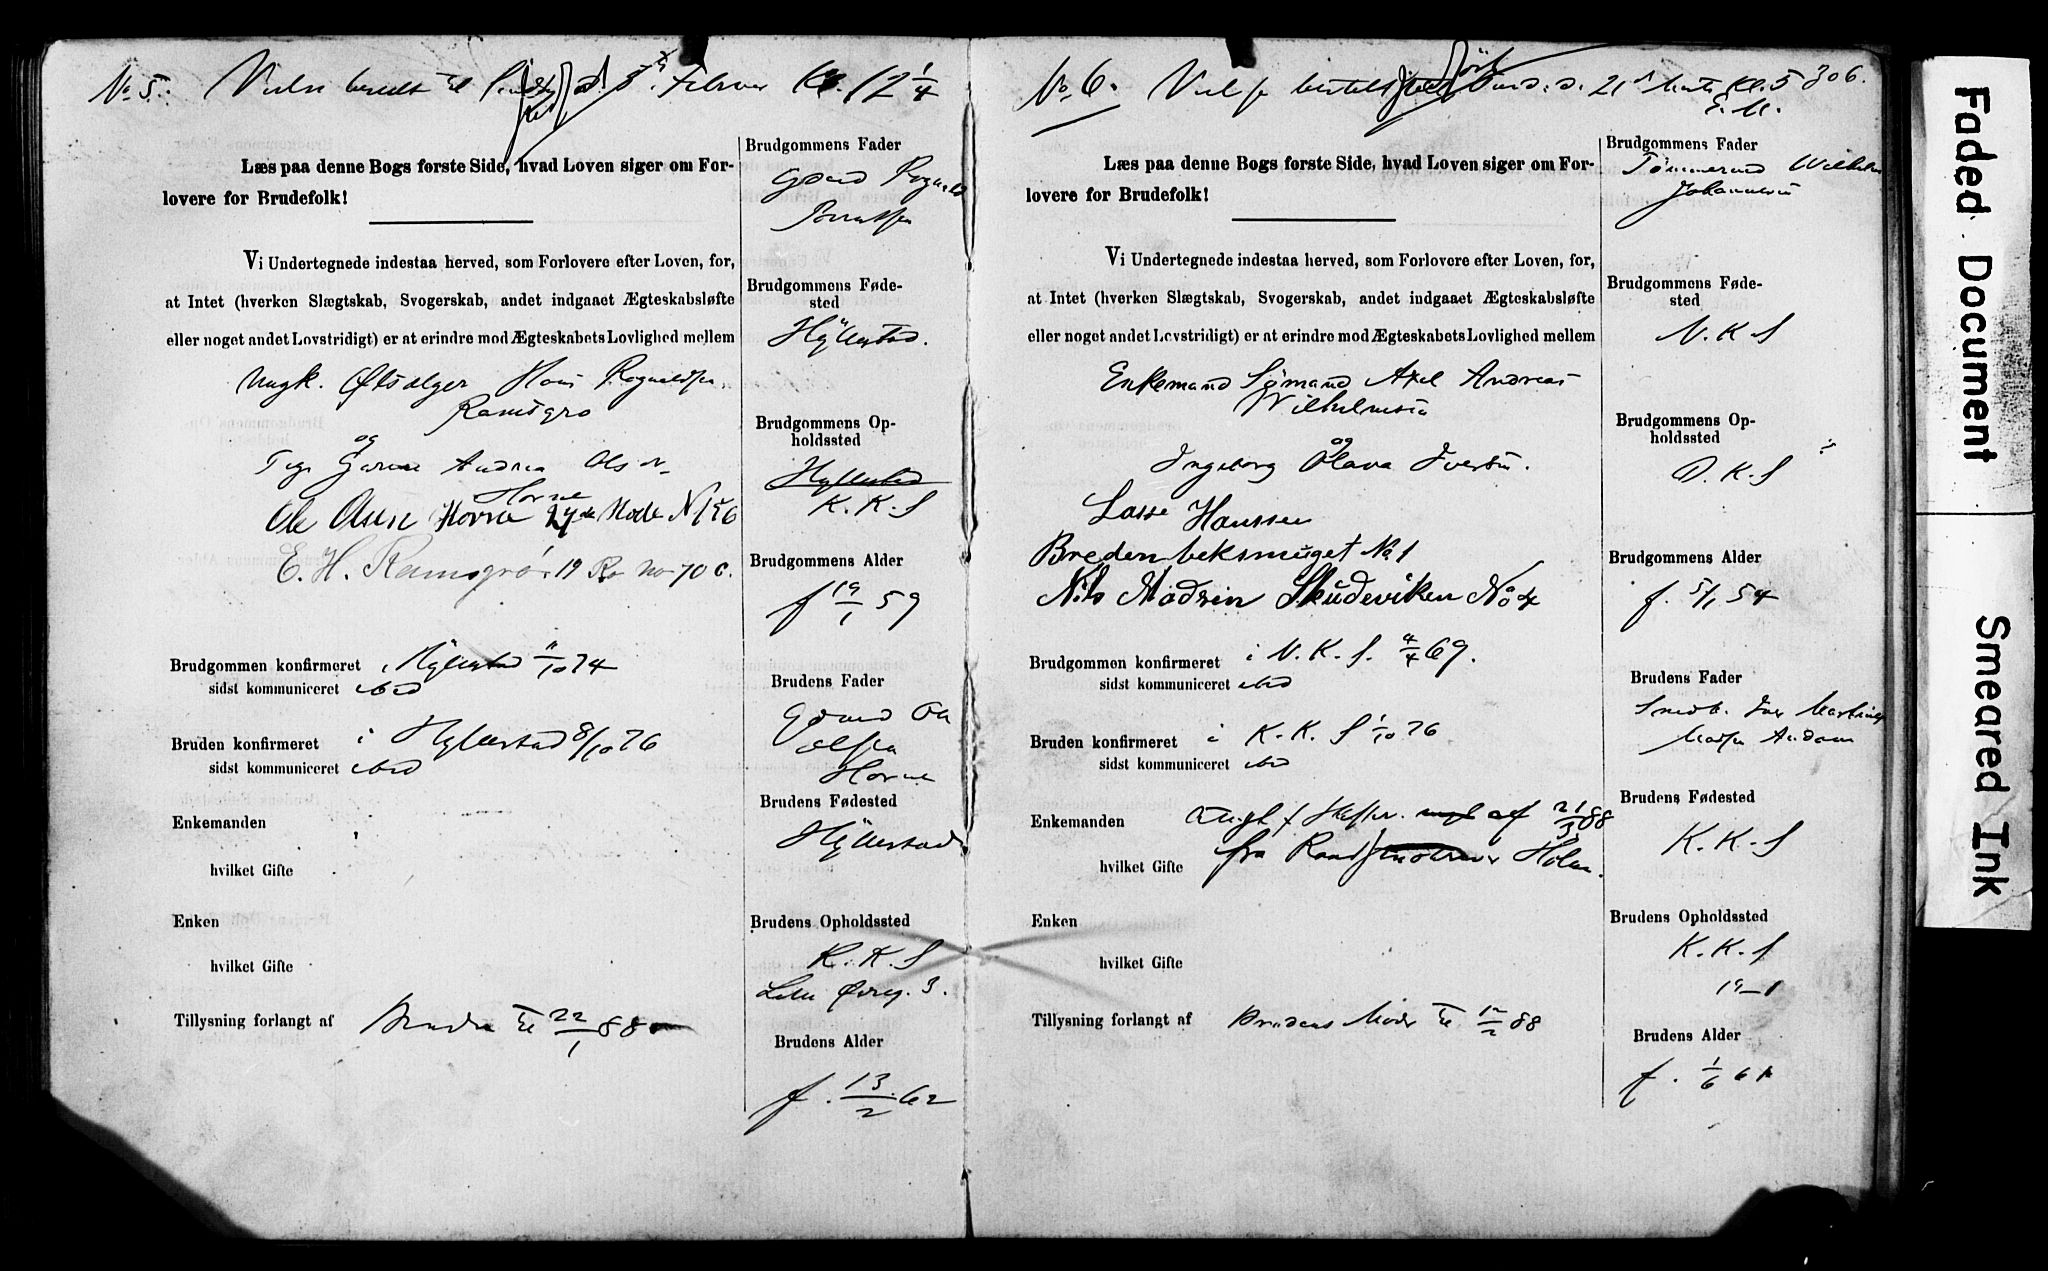 No 5. Vielse bestilt til d. 5 Februar Kl. 12 1/4
Læs paa denne Bogs første Side, hvad Loven siger om For-
lovere for Brudefolk!
Vi Undertegnede indestaa herved, som Forlovere efter Loven, for,
at Intet (hverken Slægtskab, Svogerskab, andet indgaaet Ægteskabsløfte
eller noget andet Lovstridigt) er at erindre mod Ægteskabets Lovlighed mellem
Ungk. Ølsælger Hans Rognaldsen
Ramsgrø
og
Andrea Olsen
Horne
Ole Olsen Hovne 24de Rode N 156
E. H. Ramsgrø 19 Ro No 70 c.
Brudgommen konfirmeret i Hyllestad 11/10 74
sidst kommuniceret ibid
Bruden konfirmeret i Hyllestad 8/10 76
sidst kommuniceret ibid
Enkemanden
hvilket Gifte
Enken
hvilket Gifte
Tillysning forlangt af til 22/1 88
Brudgommens Fader
Gaard Rognald
Berntsen
Brudgommens Føde-
sted
Hyllestad.
Brudgommens Op-
holdssted
Hyllestad
K. K. S
Brudgommens Alder
f 19/1 59
Brudens Fader
Gaard Ole
Olsen
Horne
Brudens Fødested
Hyllestad
Brudens Opholdssted
K. K. S
Lille Øvreg. 3.
Brudens Alder
f. 13/2 62
No 6. Vielse bestilt Onsd. d. 21 Marts Kl. 5 306.
E. M.
Læs paa denne Bogs første Side, hvad Loven siger om For-
lovere for Brudefolk!
Vi Undertegnede indestaa herved, som Forlovere efter Loven, for,
at Intet (hverken Slægtskab, Svogerskab, andet indgaaet Ægteskabsløfte
eller noget andet Lovstridigt) er at erindre mod Ægteskabets Lovlighed mellem
Enkemand Sømand Axel Andreas
Wilhelmsen
og
Ingeborg Olava Iversen.
Lasse Hanssen
Bredenbeksmuget No 1
Nils Madsen Skudeviken No 4
Brudgommen konfirmeret i N. K. S. 4/4 69.
sidst kommuniceret ibid
Bruden konfirmeret i K. K. S 1/10 76
sidst kommuniceret ibid
Enkemanden Skifte af 21/3 88
hvilket Gifte fra Holm.
Enken
hvilket Gifte
Tillysning forlangt af Brudens Moder til 12/2 88
Brudgommens Fader
Tømmermand Wilhelm
Johannesen
Brudgommens Føde-
sted
N. K. S
Brudgommens Op-
holdssted
D. K. S
Brudgommens Alder
f. 5/1 54
Brudens Fader
Snedk. Iver Martinus
Brudens Fødested
K. K. S
Brudens Opholdssted
K. K. S
19-1
Brudens Alder
f. 1/6 61
Faded Document
Smeared Ink